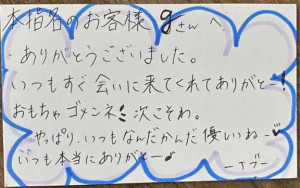 本指名のお客様 gさんへ
ありがとうございました。
いつもすぐ会いに来てくれてありがとー!
おもちゃゴメンネ! 次こそわ。
やっぱり、いつもなんだかんだ優しいね〜♥
いつも本当にありがとー♪